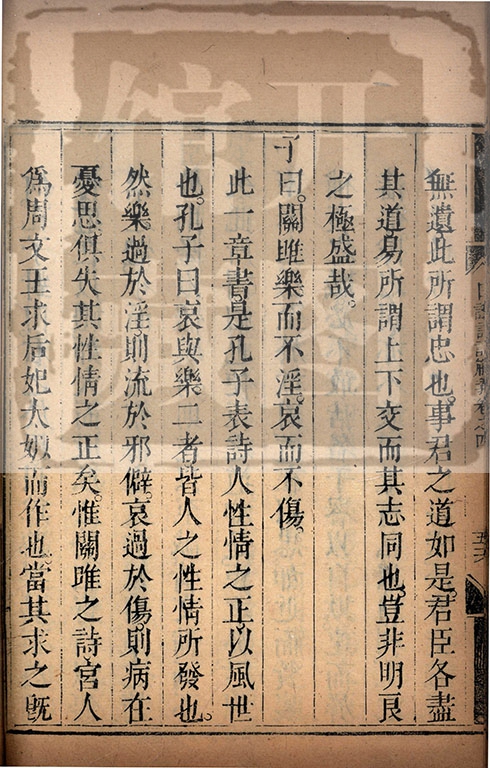 無遺此所謂忠也。事君之道如是。君臣各盡
其道易所謂上下交而其志同也。豈非明良
之極盛哉。
子曰。關雎樂而不淫。哀而不傷。
此一章書。是孔子表詩人性情之正。以風世
也。孔子曰哀與樂。二者皆人之性情所發也。
然樂過於淫則流於邪僻。哀過於傷。則病在
憂思俱失其性情之正矣。惟關雎之詩宮人
為周文王求后妃太姒而作也。當其求之旣